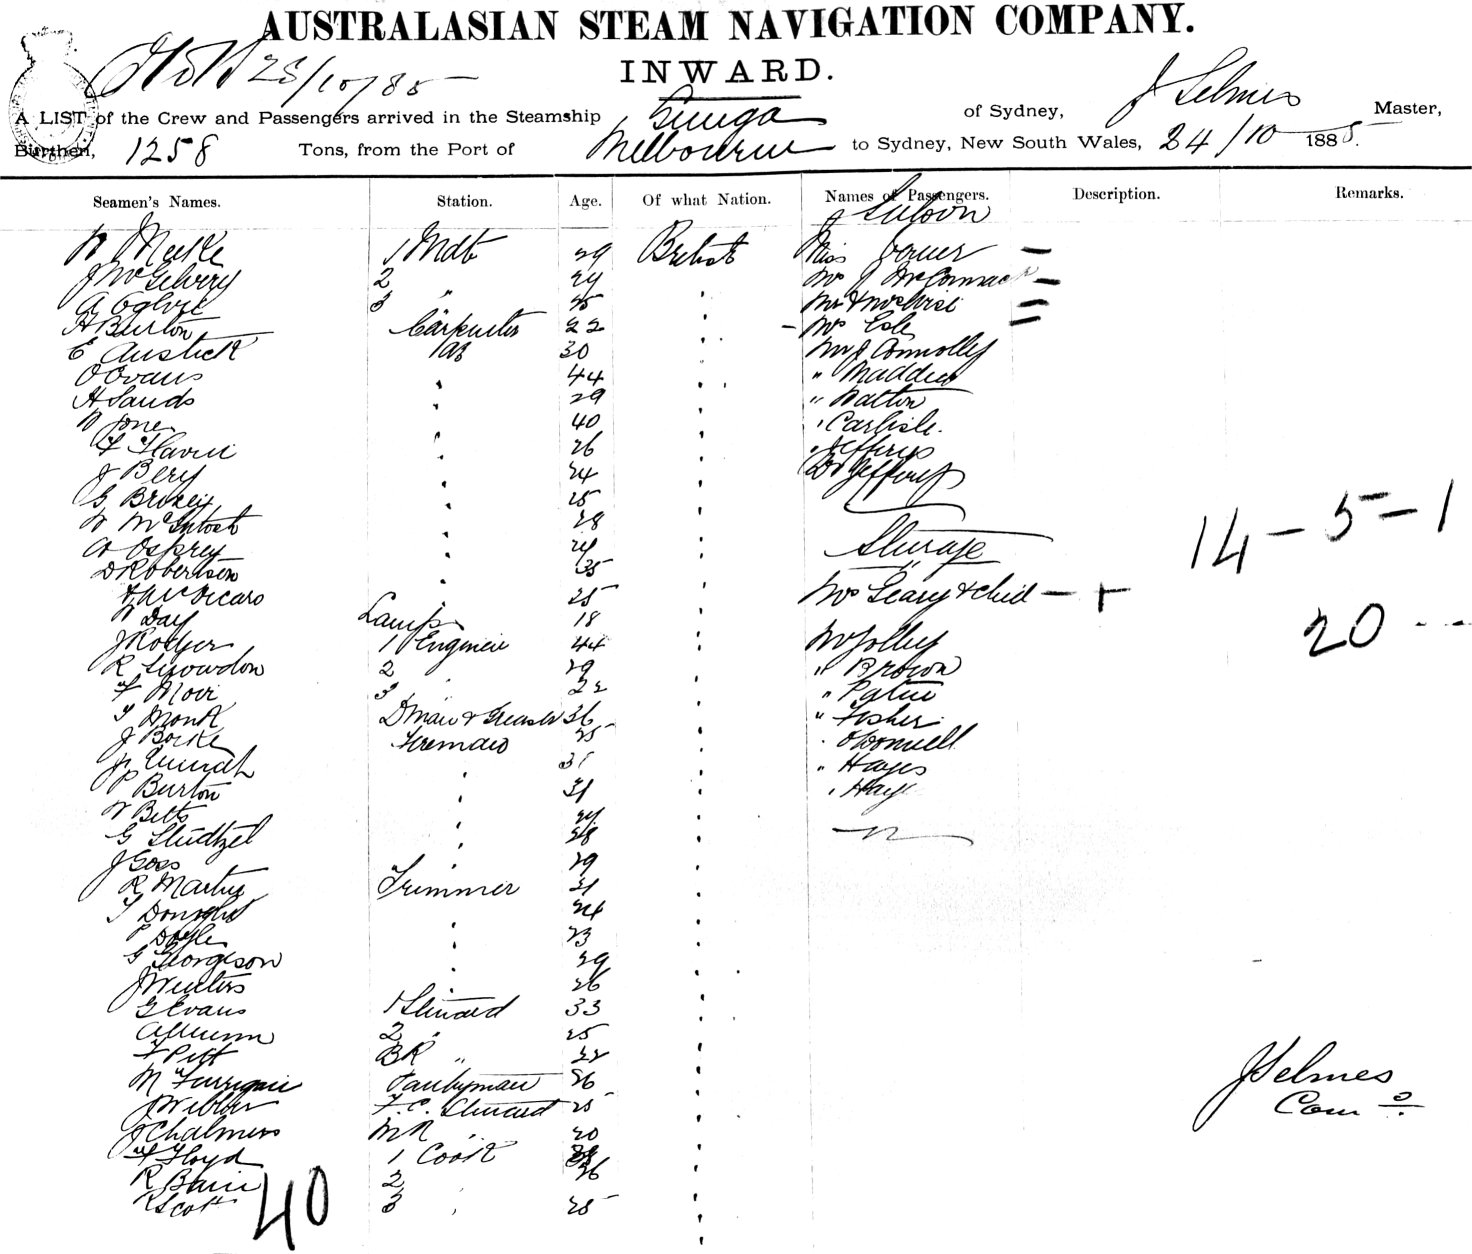 AUSTRALASIAN STEAM NAVIGATION COMPANY.
INWARD.
23/10/85
A LIST of the Crew and Passengers arrived in the Steamship Gunga of Sydney, J Selmes Master,
Burthen, 1258 Tons, from the Port of Melbourne to Sydney, New South Wales, 24/10 1885.
Seamen's Names. Station. Age. Of what Nation. Names of Passengers. Description. Remarks.
Saloon
W Meeke 1 Mate 29 British Miss
J McGilvery 2 " 29 Mrs J McCormack
A Ogilvie 3 25 Mr &
H Burton Carpenter 22 Mrs
E Austick AB 30 Mr J Connolly
O Evans 44 " Madden
H Sands 29 "
W Jones 40 Carlisle.
F Flavin 26 Jefferys
J Bery 24 Dr Jefferys
G 25
W McIntosh 28
A Osprey 24 Steerage
D Robertson 35
25 Mrs Geary & Child — +
W Day Lamps 18
J Rodger 1 Engineer 44 Mr Jolley
R Snowdon 2 29 " Brown
F Moir 3 22 "
T Monk Dman & Greaser 36 " Fisher
J Fireman 25 O'Donnell
J 31 " Hayes
P Burton 31 Hay
W Betts 24
G 28
J Goss 29
R Martin Trimmer 21
T 24
P Doyle 23
G Georgeson 29
J Winters 26
G Evans 1 Steward 33
2 " 25
F Pitt BR " 22
M Pantryman 26
J Webber F.C. Steward 25
J Chalmers 20
F Floyd 1 Cook
R Bain 2 26
R Scott 3 25
40
14 - 5 - 1
20
J Selmes
Com